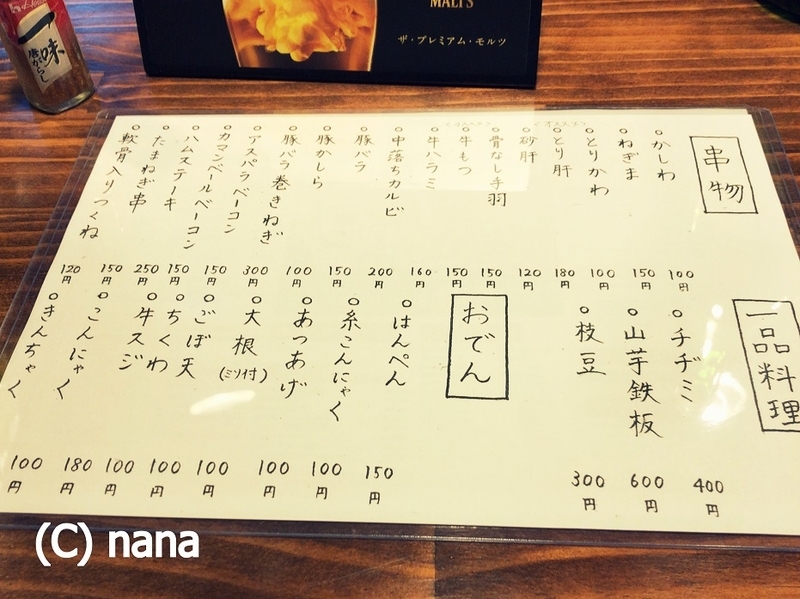 MALT'S
ザ・プレミアム・モルツ
一味
唐がらし
串物
○かしわ 100円
○ねぎま 150円
○とりかわ 100円
○とり肝 180円
○砂肝 120円
○骨なし手羽 150円
○牛もつ 150円
○牛ハラミ 160円
○中落ちカルビ 200円
○豚バラ 150円
○豚かしら 100円
○豚バラ巻きねぎ 300円
○アスパラベーコン 150円
○カマンベールベーコン 150円
○ハムステーキ 250円
○たまねぎ串 150円
○軟骨入りつくね 120円
一品料理
○チヂミ 400円
○山芋鉄板 600円
○枝豆 300円
おでん
○はんぺん 150円
○糸こんにゃく 100円
○あつあげ 100円
○大根(ミソ付) 100円
○ごぼ天 100円
○ちくわ 100円
○牛スジ 180円
○こんにゃく 100円
○きんちゃく
(C) nana